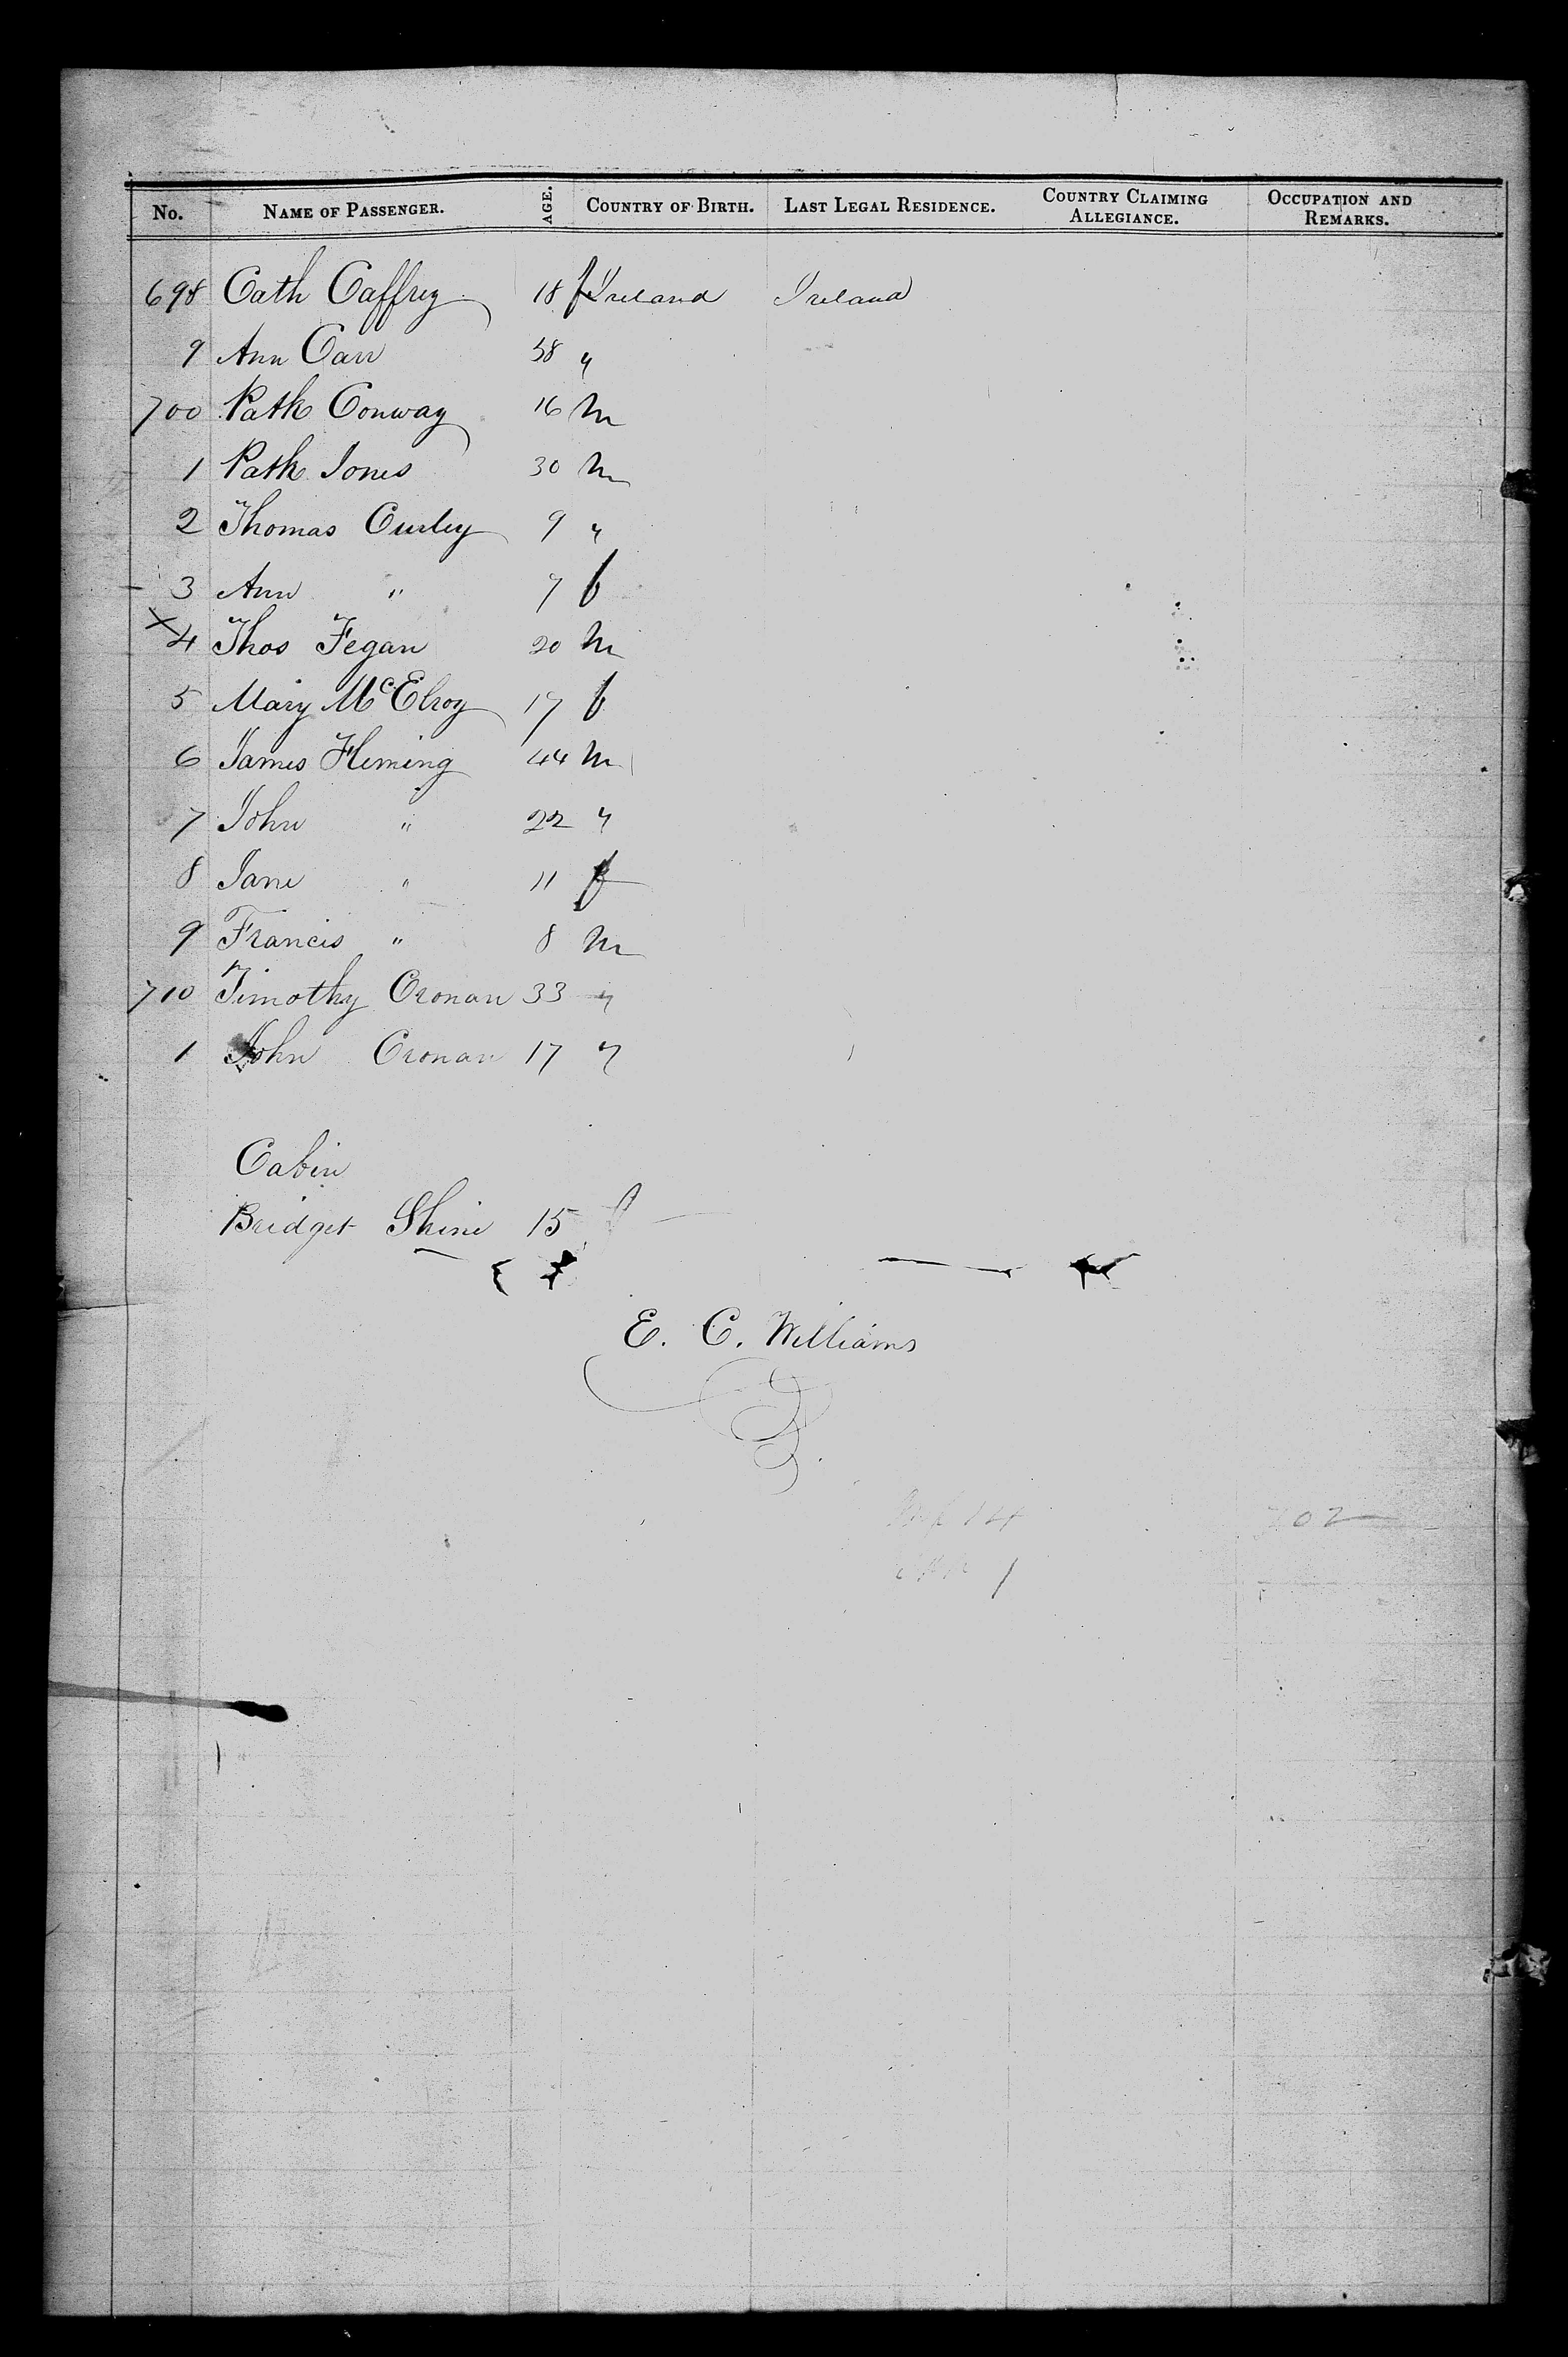 No. NAME OF PASSENGER. AGE. COUNTRY OF BIRTH. LAST LEGAL RESIDENCE. COUNTRY CLAIMING ALLEGIANCE. OCCUPATION AND REMARKS.
698 Cath Caffrey 18 f Ireland Ireland
9 Ann Carr 38 "
700 Patk Conway 16 m
1 Patk Jones 30 m
2 Thomas Curley 9 "
3 Ann " 7 f
X 4 Thos Fegan 20 m
5 Mary McElroy 17 f
6 James Fleming 44 m
7 John " 22 "
8 Jane " 11 f
9 Francis " 8 m
710 Timothy Cronan 33 "
1 John Cronan 17 "
Cabin
Bridget Shine 15 f
E. C. Williams
14 702
1